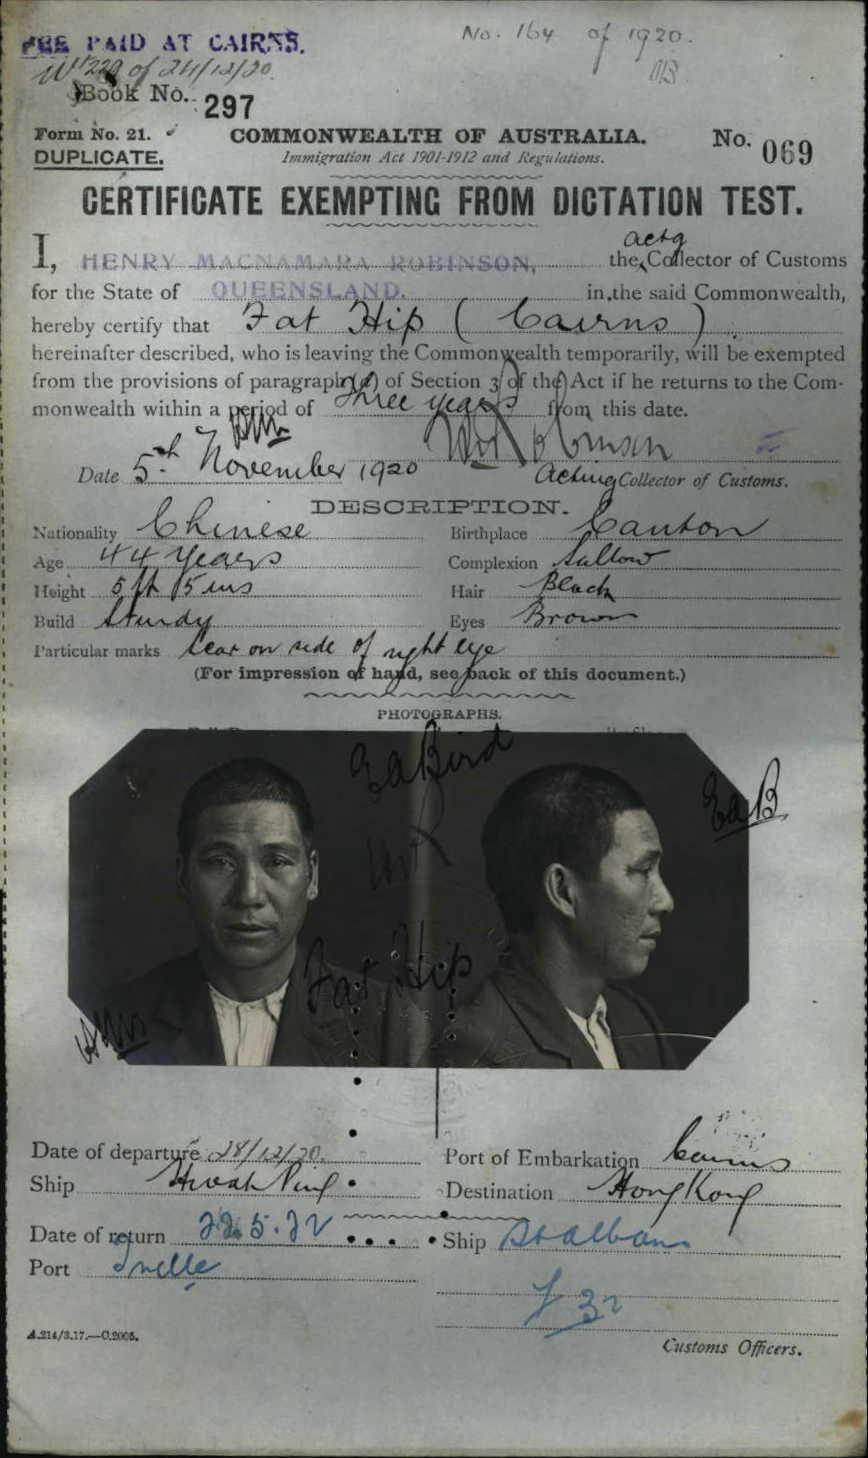 FEE PAID AT CAIRNS.
No. 164 of 1920.
of 24/12/20.
Book No. 297
Form No. 21.
COMMONWEALTH OF AUSTRALIA.
No. 069
DUPLICATE.
Immigration Act 1901-1912 and Regulations.
CERTIFICATE EXEMPTING FROM DICTATION TEST.
I, HENRY MACNAMARA ROBINSON, the Actg Collector of Customs
for the State of QUEENSLAND. in the said Commonwealth,
hereby certify that Fat Hip (Cairns)
hereinafter described, who is leaving the Commonwealth temporarily, will be exempted
from the provisions of paragraph (a) of Section 3 of the Act if he returns to the Com-
monwealth within a period of three years from this date.
Date 5th November 1920 Acting Collector of Customs.
DESCRIPTION.
Nationality Chinese Birthplace Canton
Age 44 years Complexion Sallow
Height 5 ft 5 ins Hair Black
Build Sturdy Eyes Brown
Particular marks Scar on side of right eye
(For impression of hand, see back of this document.)
PHOTOGRAPHS.
GaBird
GaB
Fat Hip
Date of departure 28/12/20. Port of Embarkation Cairns
Ship Hwah Ping Destination Hong Kong
Date of return 22.5.22 Ship St Albans
Port Tville
A.214/3.17.—C.2005.
Customs Officers.